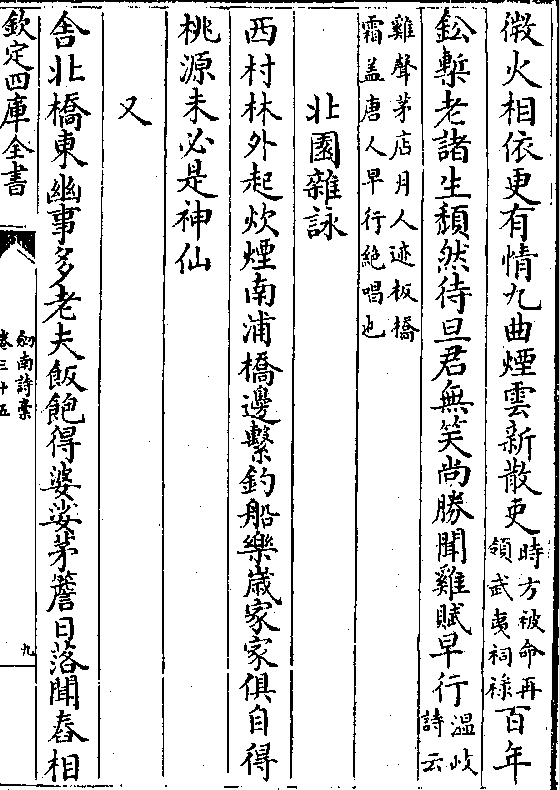 微火相依更有情九曲煙雲新散吏時方被命再領武夷祠祿百年
鈆槧老諸生頹然待旦君無笑尚勝聞雞賦早行溫岐詩云
雞聲茅店月人迹板橋霜盖唐人早行絶唱也
北園雜詠
西村林外起炊煙南浦橋邊繫釣船樂歳家家俱自得
桃源未必是神仙
又
舎北橋東幽事多老夫飯飽得婆娑茅簷日落聞舂相
欽定四庫全書
劎南詩藁
卷三十五
九